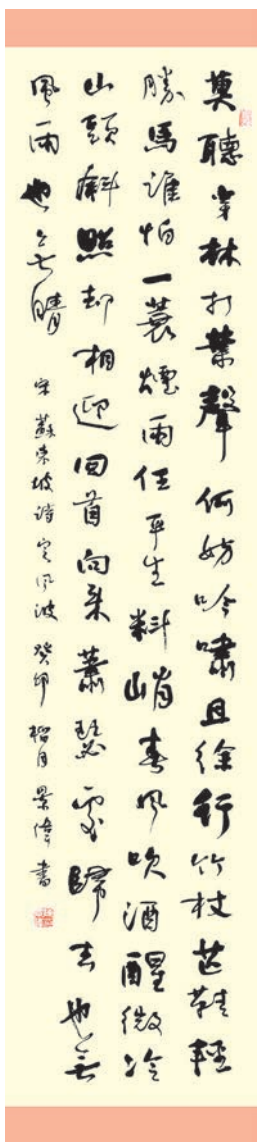 莫聽穿林打葉聲何妨吟嘯且徐行竹杖芒鞋輕
勝馬誰怕一蓑煙雨任平生料峭春風吹酒醒微冷
山頭斜照却相迎回首向來蕭瑟處歸去也無
風雨也無晴 宋蘇東坡詩定風波 癸卯榴月景偉書